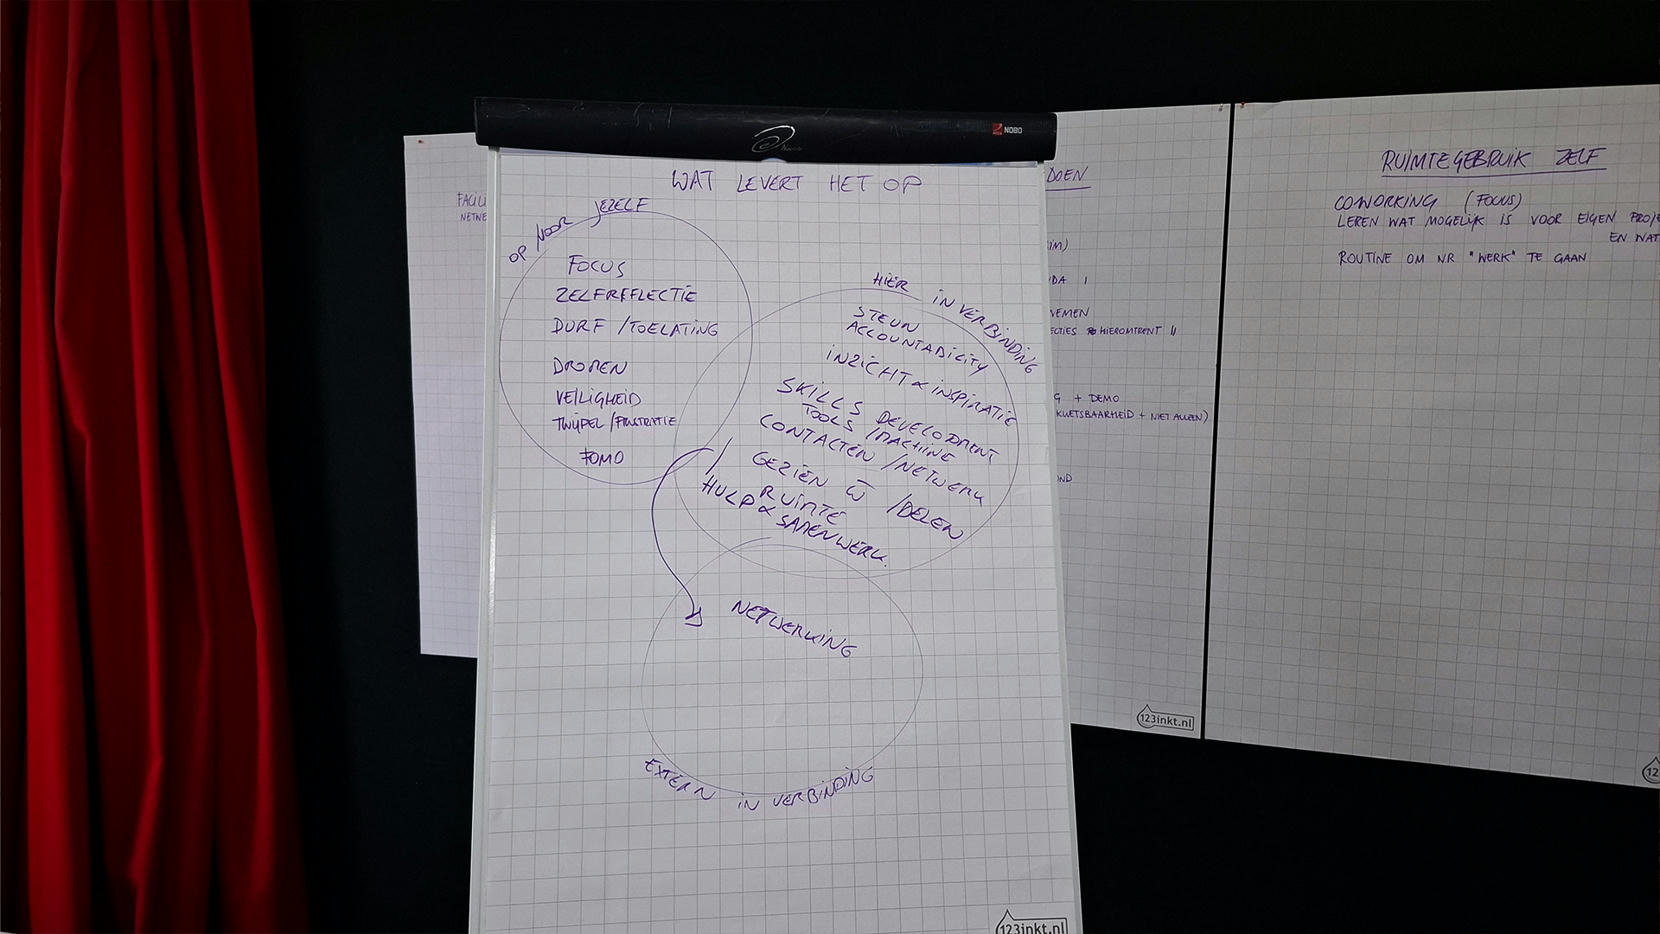 NOBO
WAT LEVERT HET OP
OP/VOOR JEZELF
FOCUS
ZELFREFLECTIE
DURF / TOELATING
DROMEN
VEILIGHEID
TWIJFEL/FRUSTRATIE
FOMO
HIER IN VERBINDING
STEUN
ACCOUNTABILITY
INZICHT & INSPIRATIE
SKILLS DEVELOPMENT
TOOLS /MACHINE
CONTACTEN /NETWERK
GEZIEN W /DELEN
RUIMTE
HULP & SAMENWERK.
NETWERKING
EXTERN IN VERBINDING
123inkt.nl
FACILI
NETWE
DOEN
IM)
DA 1
VEMEN
ECTIES HIEROMTRENT !!
G + DEMO
KWETSBAARHEID + NIET ALLEEN)
OND
123inkt.nl
RUIMTEGEBRUIK ZELF
COWORKING (FOCUS)
LEREN WAT MOGELIJK IS VOOR EIGEN PROJE
EN WAT
ROUTINE OM NR "WERK" TE GAAN
12